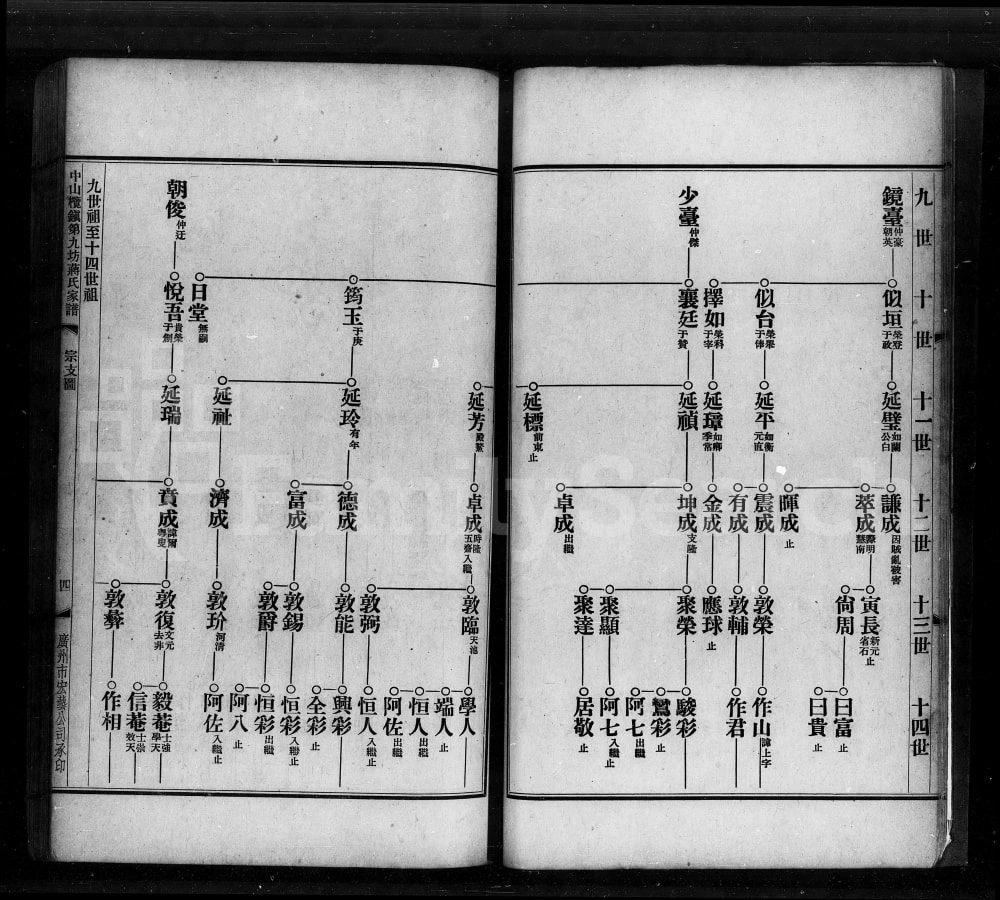 九世
十世
十一世
十二世
十三世
十四世
鏡臺 仲豪 朝英
少臺 仲傑
似垣 榮登 于政
似台 榮舉 于俸
擇如 榮科 于宰
襄廷 于贊
延璧 如蘭 公白
延平 如衡 元直
延璋 如卿 季常
延禎
延標 前東 止
謙成 因賊亂被害
萃成 際明 慧南
暉成 止
震成
有成
金成
坤成 支隆
卓成 出繼
寅長 新元 省石 止
尙周
敦榮
敦輔
應球 止
聚榮
聚顯
聚達
曰富 止
曰貴 止
作山 諱上字
作君
駿彩
鸞彩 止
阿七 出繼
阿七 入繼 止
居敬 止
朝俊 仲迂
筠玉 于庚
日堂 無嗣
悅吾 貴榮 于劍
延芳 殿鰲
延玲 有年
延祉
延瑞
卓成 時隆 五齋 入繼
德成
富成
濟成
賁成 諱爾 粵叟
敦臨 天池
敦弼
敦能
敦錫
敦爵
敦玠 河清
敦復 文元 去非
敦彝
學人
端人 止
恒人 出繼
阿佐 出繼
恒人 入繼 止
興彩
全彩 止
恒彩 入繼 止
恒彩 出繼
阿八 止
阿佐 入繼 止
毅菴 士強 學天
信菴 士崇 效天
作相
九世祖至十四世祖
中山欖鎭第九坊蔣氏家譜
宗支圖
四
廣州市宏藝公司承印
FamilySearch